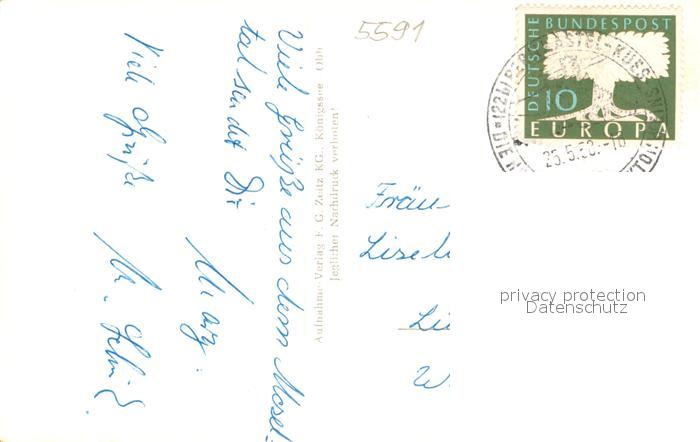 5591
DEUTSCHE BUNDESPOST
10
EUROPA
(22b) BERNKASTEL-KUES
25.5.58.-18
Viele Grüße aus dem Mosel-
tal sendet Dir
Viele Grüße
Aufnahme-Verlag F. G. Zeitz KG., Königssee Obb
Jeglicher Nachdruck verboten!
Fräu
Lisel
Li
W
privacy protection
Datenschutz